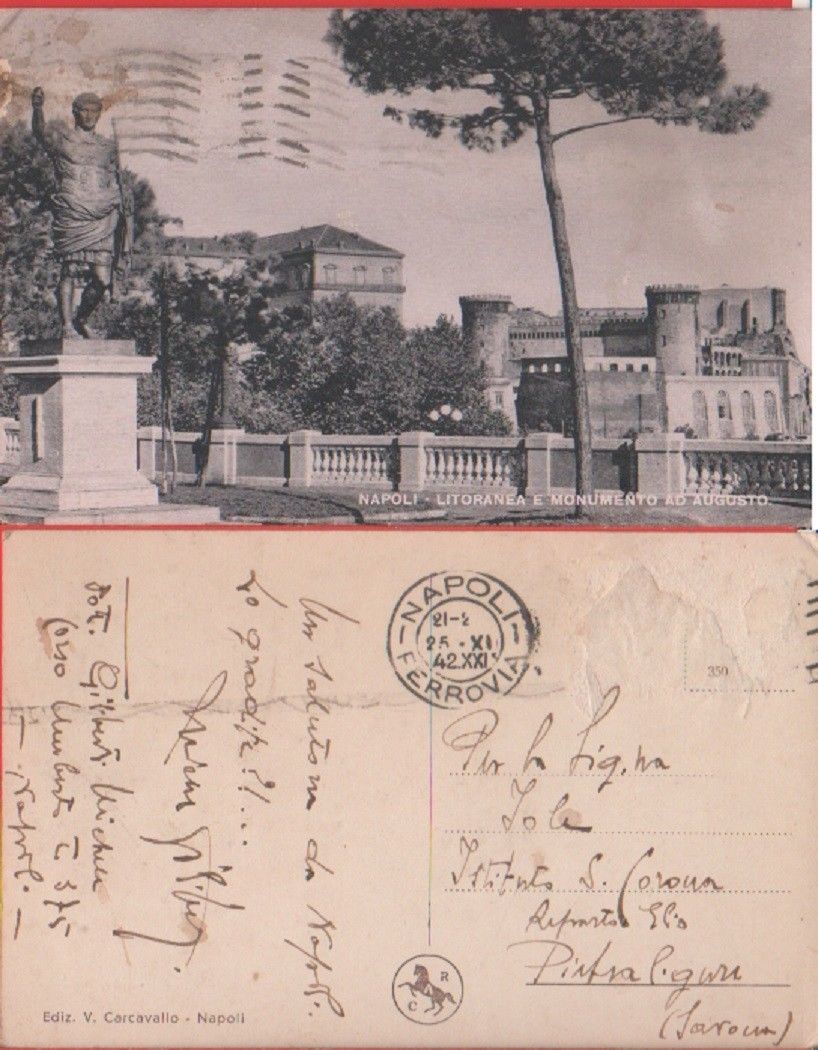 NAPOLI - LITORANEA E MONUMENTO AD AUGUSTO
NAPOLI
21-2
25 · XI
42.XXI
FERROVIA
350
Un saluto da Napoli.
Lo gradite?!...
Dot. Gilberti
Corso Umberto I 375
- Napoli -
Per la Sig.na
Iole
Istituto S. Corona
Reparto Elio
Pietra Ligure
(Savona)
R
C
Ediz. V. Carcavallo - Napoli